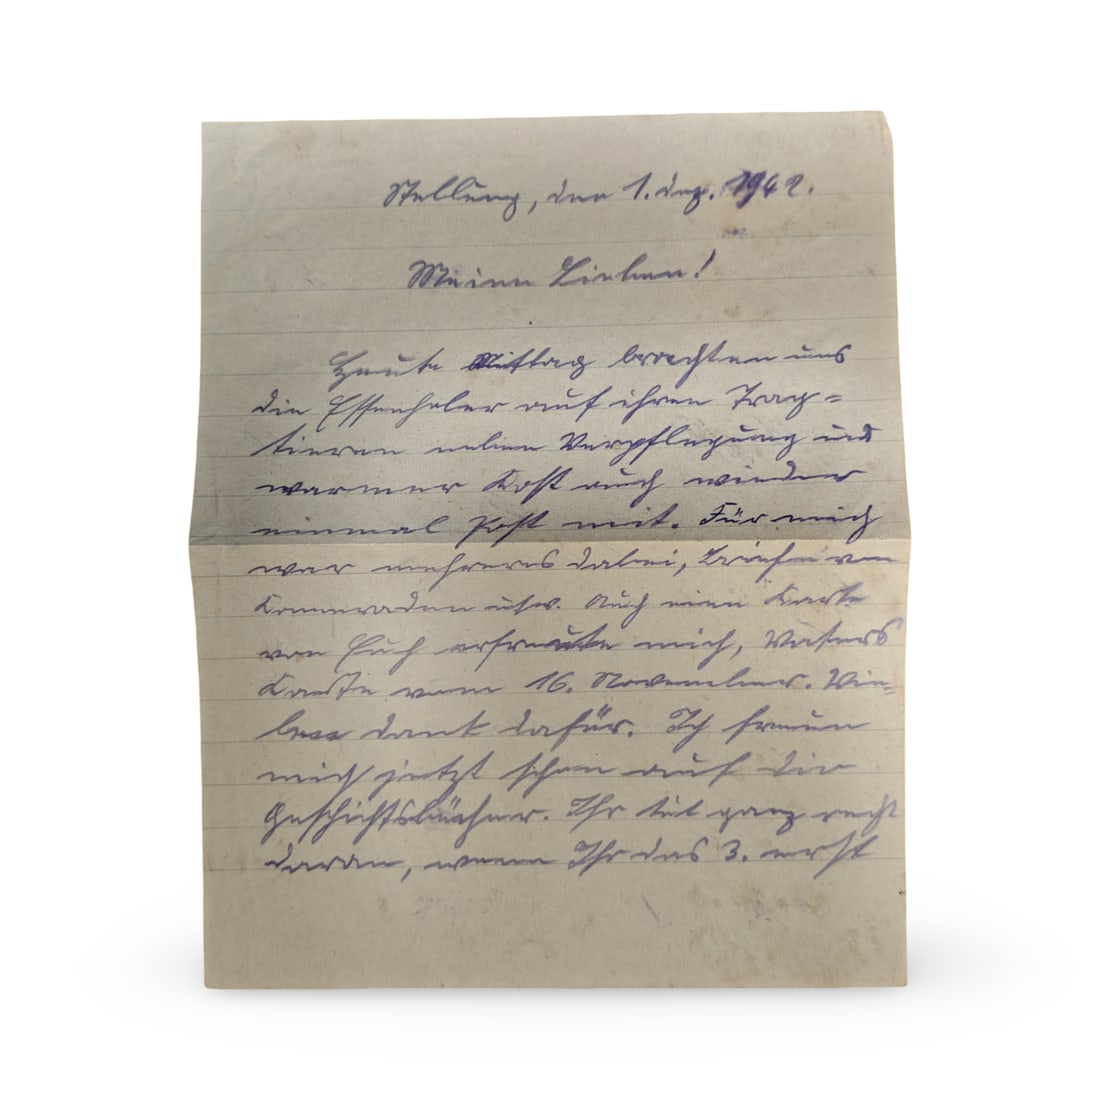 Stellung, den 1. Dez. 1942.
Meine Lieben!
Heute Mittag brachten uns
die Essenholer auf ihren Trag-
tieren neben Verpflegung und
warmer Kost auch wieder
einmal Post mit. Für mich
war mehreres dabei, Briefe von
Kameraden usw. Auch eine Karte
von Euch erfreute mich, Vaters
Karte vom 16. November. Vie-
len Dank dafür. Ich freue
mich jetzt schon auf die
Geschichtsbücher. Ihr tut ganz recht
daran, wenn Ihr das 3. erst